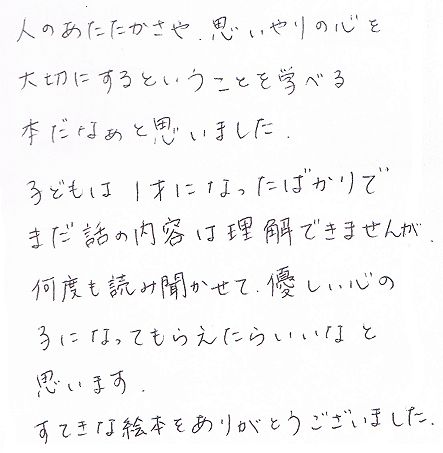 人のあたたかさや、思いやりの心を
大切にするということを学べる
本だなぁと思いました.
子どもは1才になったばかりで
まだ話の内容は理解できませんが、
何度も読み聞かせて、優しい心の
子になってもらえたらいいなと
思います.
すてきな絵本をありがとうございました.